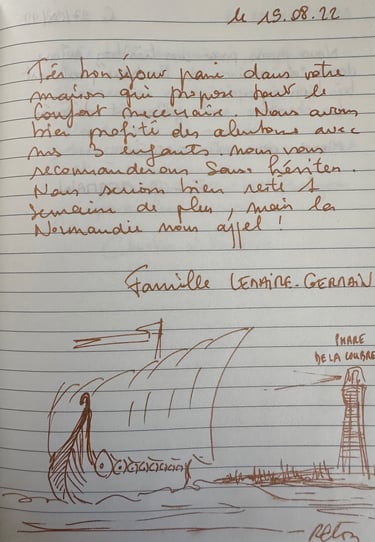 le 19.08.22
Très bon séjour passé dans votre
maison qui propose tout le
confort nécessaire. Nous avons
bien profité des alentours avec
nos 3 enfants. nous vous
recommanderons sans hésiter.
Nous serions bien resté 1
semaine de plus, mais la
Normandie nous appel !
Famille LEMAIRE-GERMAIN
PHARE
DE LA COUBRE